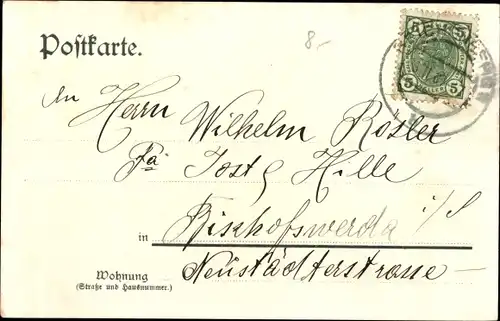 8.-
Postkarte.
5 5
5 5
An Herrn Wilhelm Rosler
Fa Jost & Hille
in Bischofswerda i/S
Wohnung
Neustädterstrasse
(Straße und Hausnummer.)